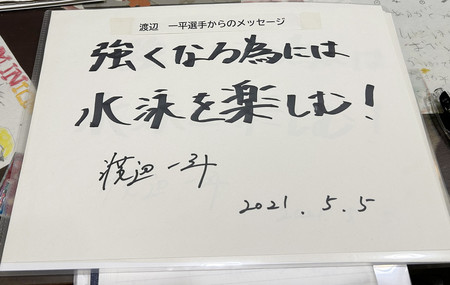 渡辺　一平選手からのメッセージ
強くなる為には
水泳を楽しむ!
渡辺一平
2021.5.5